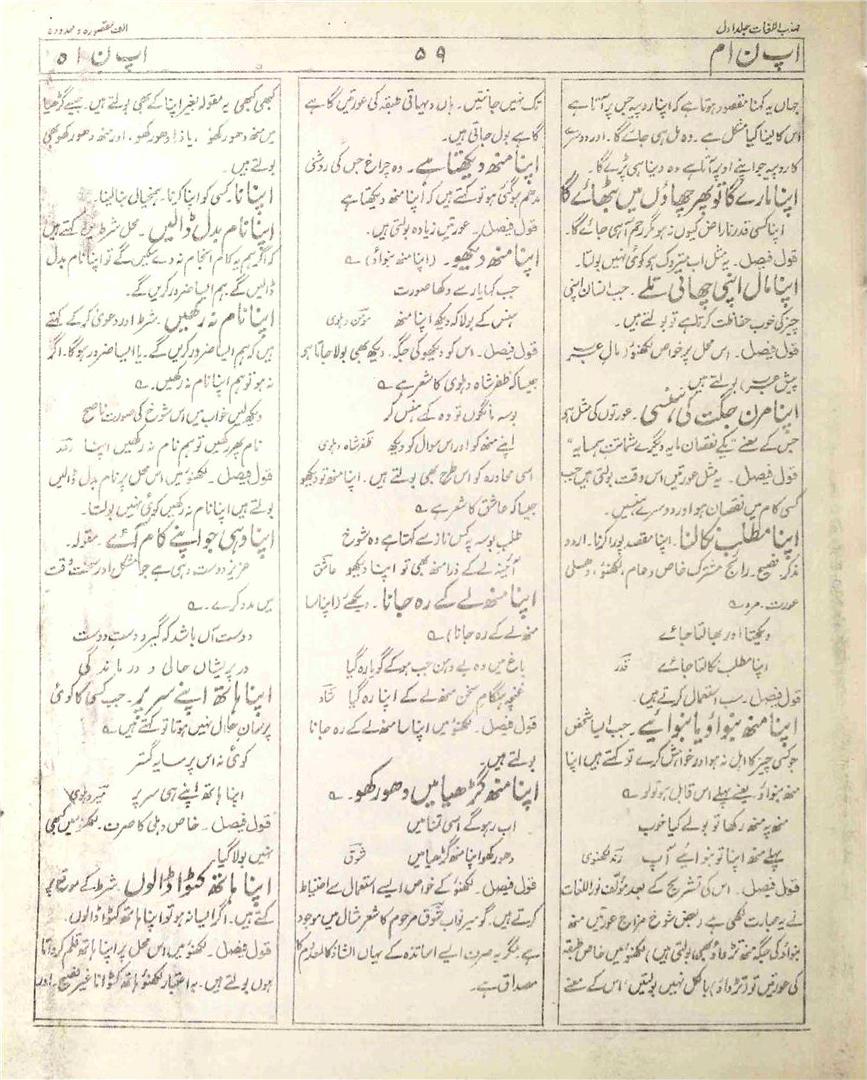 مہذب اللغات جلد اول
الف مقصورہ و ممدودہ
ا پ ن ا م
۵۹
ا پ ن ا ہ
جہاں یہ کہنا مقصود ہوتا ہے کہ اپنا روپیہ جس پر آتا ہے
اس کا لینا کیا مشکل ہے۔ وہ مل ہی جائے گا۔ اور دوسرے
کا روپیہ جو اپنے اوپر آتا ہے وہ دینا ہی پڑے گا۔
اپنا مارے گا تو پھر چھاؤں میں بٹھائے گا
اپنا کسی قدر ناراض کیوں نہ ہو مگر رحم آ ہی جائے گا۔
قول فیصل۔ یہ مثل اب متروک ہے کوئی نہیں بولتا۔
اپنا مال اپنی چھاتی تلے۔ جب انسان اپنی
چیز کی خوب حفاظت کرتا ہے تو بولتے ہیں۔
قول فیصل۔ اس محل پر خواص لکھنؤ (مال عرب
پیش عرب) بولتے ہیں۔
اپنا مرن جگت کی ہنسی۔ عورتوں کی مثل ہے
جس کے معنے "یکے نقصان مایہ و دیگرے شماتت ہمسایہ"
قول فیصل۔ یہ مثل عورتیں اس وقت بولتی ہیں جب
کسی کام میں نقصان ہو اور دوسرے ہنسیں۔
اپنا مطلب نکالنا۔ اپنا مقصد پورا کرنا۔ اردو
مذکر۔ فصیح۔ رائج مشترک خاص و عام، لکھنؤ، دہلی
عورت۔ مرد ؎
دیکھتا اور بھالتا جائے
اپنا مطلب نکالتا جائے قدر
قول فیصل۔ سب استعمال کرتے ہیں۔
اپنا منھ بنواؤ یا بنوائیے۔ جب ایسا شخص
جو کسی چیز کا اہل نہ ہو اور خواہش کرے تو کہتے ہیں اپنا
منھ بنواؤ یعنے پہلے اس قابل ہو تو لو ؎
منھ پہ منھ رکھا تو بولے کیا خوب
پہلے منھ اپنا تو بنوائے آپ رند لکھنوی
قول فیصل۔ اس کی تشریح کے بعد مؤلف نور اللغات
نے یہ عبارت لکھی ہے (بعض شوخ مزاج عورتیں منھ
بنواؤ کی جگہ منھ تڑواؤ بھی بولتی ہیں) لکھنؤ میں خاص طبقہ
کی عورتیں تو (تڑواؤ) بالکل نہیں بولتیں اس کے معنے
تک نہیں جانتیں۔ ہاں دیہاتی طبقہ کی عورتیں گاہے
گاہے بول جاتی ہیں۔
اپنا منھ دیکھتا ہے۔ وہ چراغ جس کی روشنی
مدھم ہو گئی ہو تو کہتے ہیں کہ اپنا منھ دیکھتا ہے
قول فیصل۔ عورتیں زیادہ بولتی ہیں۔
اپنا منھ دیکھو۔ (اپنا منھ بنواؤ) ؎
جب کہا یار سے دکھا صورت
ہنس کے بولا کہ دیکھ اپنا منھ مومن دہلوی
قول فیصل۔ اس کو دیکھو کی جگہ۔ دیکھ بھی بولا جاتا ہے
جیسا کہ ظفر شاہ دہلوی کا شعر ہے ؎
بوسہ مانگوں تو وہ کہے ہنس کر
اپنے منھ کو اور اس سوال کو دیکھ ظفر شاہ دہلوی
اسی محاورہ کو اس طرح بھی بولتے ہیں۔ اپنا منھ تو دیکھو
جیسا کہ عاشق کا شعر ہے ؎
طلب بوسہ پہ کس ناز سے کہتا ہے وہ شوخ
آئینہ لے کے ذرا منھ بھی تو اپنا دیکھو عاشق
اپنا منھ لے کے رہ جانا۔ دیکھئے (اپنا سا
منھ لے کے رہ جانا) ؎
باغ میں وہ بے دہن جب ہو کے گویا رہ گیا
غنچہ ہنگام سخن منھ لے کے اپنا رہ گیا شاد
قول فیصل۔ لکھنؤ میں اپنا سا منھ لے کے رہ جانا
بولتے ہیں۔
اپنا منھ گڑھیا میں دھو رکھو۔ ؎
اب رہو گے اسی تمنا میں
دھو رکھو اپنا منھ گڑھیا میں شوق
قول فیصل۔ لکھنؤ کے خواص ایسے استعمال سے احتیاط
کرتے ہیں۔ گو میر نواب شوق مرحوم کا شعر مثال میں موجود
ہے مگر یہ صرف ایسے اساتذہ کے یہاں الشاذ کالمعدوم کا
مصداق ہے۔
کبھی کبھی یہ مقولہ بغیر اپنا کے بھی بولتے ہیں۔ جیسے گڑھیا
میں منھ دھو رکھو، یا ذرا دھو رکھو، اور منھ دھو رکھو بھی
بولتے ہیں۔
اپنانا کسی کو اپنا کرنا۔ ہمخیالی بنا لینا۔
اپنا نام بدل ڈالیں۔ محل شرط میں کہتے ہیں
کہ اگر ہم یہ کام انجام نہ دے سکیں گے تو اپنا نام بدل
ڈالیں گے۔ ہم ایسا ضرور کریں گے۔
اپنا نام نہ رکھیں۔ شرط اور دعویٰ کر کے کہتے
ہیں کہ ہم ایسا ضرور کریں گے۔ یا ایسا ضرور ہوگا۔ اگر
نہ ہو تو ہم اپنا نام نہ رکھیں۔ ؎
دیکھ لیں خواب میں اس شوخ کی صورت ناصح
نام پھر رکھیں تو ہم نام نہ رکھیں اپنا رند
قول فیصل۔ لکھنؤ میں اس محل پر نام بدل ڈالیں
بولتے ہیں اپنا نام نہ رکھیں کوئی نہیں بولتا۔
اپنا وہی جو اپنے کام آئے۔ مقولہ۔
عزیز دوست وہی ہے جو مشکل اور سخت وقت
میں مدد کرے۔ ؎
دوست آں باشد کہ گیرد دست دوست
در پریشاں حالی و درماندگی
اپنا ہاتھ اپنے سر پر۔ جب کسی کا کوئی
پرسان حال نہیں ہوتا تو کہتے ہیں ؎
کوئی نہ اس پر سایہ گستر
اپنا ہاتھ اپنے ہی سر پر میر دہلوی
قول فیصل۔ خاص دہلی کا صرف۔ لکھنؤ میں کبھی
نہیں بولا گیا۔
اپنا ہاتھ کٹوا ڈالوں۔ شرط کے موقع پر
کہتے ہیں۔ اگر ایسا نہ ہو تو اپنا ہاتھ کٹوا ڈالوں۔
قول فیصل۔ لکھنؤ میں اس محل پر اپنا ہاتھ قلم کرواتا
ہوں بولتے ہیں۔ بہ اعتبار لکھنؤ ہاتھ کٹوانا غیر فصیح۔ اور